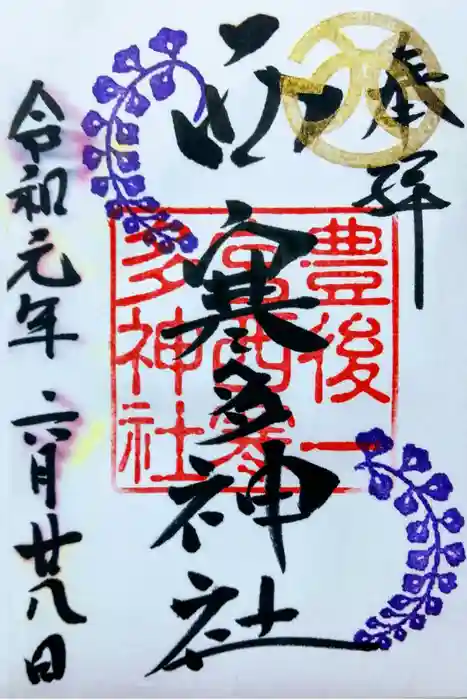 奉拝
西寒多神社
豊後一
宮西寒
多神社
令和元年六月廿八日